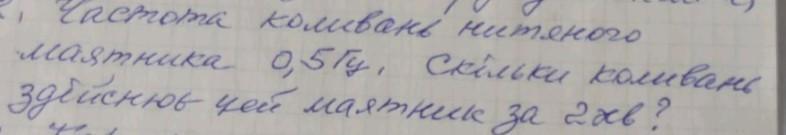 Частота коливань нитяного
маятника 0,5 Гц. Скільки коливань
здійснює цей маятник за 2хв?